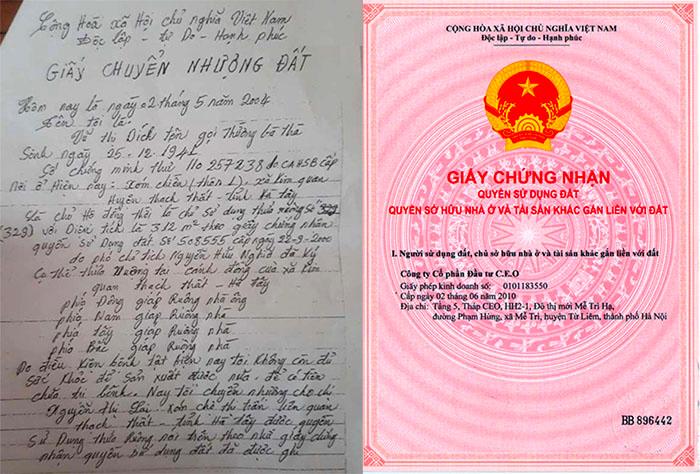 Cộng Hoà xã Hội chủ nghĩa Việt Nam
Độc lập - tự Do - Hạnh phúc
GIẤY CHUYỂN NHƯỢNG ĐẤT
Hôm nay là ngày 02 tháng 5 năm 2004
Tên tôi là:
Vũ Thị Dích tên gọi thường bà Hà
Sinh ngày 25-12-1942
Số chứng minh thư 110 257238 do CAHSB cấp
nơi ở Hiện nay: xóm chiến (thôn 1), xã Kim quan
Huyện thạch thất - tỉnh Hà tây
Là chủ Hộ đồng thời là chủ sử dụng thửa Ruộng Số 329
(329) với Diện tích là 312 m² theo giấy chứng nhận
quyền sử Dụng đất. Số 508555 cấp ngày 22-9-2000
do phó chủ tịch Nguyễn Hữu Nghĩa đã ký
Cụ thể thửa Ruộng tại cánh đồng của xã Kim
quan thạch thất - Hà tây
phía Đông giáp Ruộng nhà ông
phía Nam giáp Ruộng nhà
phía tây giáp Ruộng nhà
phía Bắc giáp Ruộng nhà
Do điều kiện bệnh tật hiện nay tôi không còn đủ
sức khỏe để sản xuất được nữa, để có tiền
chữa trị bệnh. Nay tôi chuyển nhượng cho chị
Nguyễn Thị xóm chế thị trấn liên quan
thạch thất - tỉnh Hà tây được quyền
sử Dụng thửa Ruộng nói trên theo như giấy chứng
nhận quyền sử dụng đất đã được ghi
CỘNG HÒA XÃ HỘI CHỦ NGHĨA VIỆT NAM
Độc lập - Tự do - Hạnh phúc
GIẤY CHỨNG NHẬN
QUYỀN SỬ DỤNG ĐẤT
QUYỀN SỞ HỮU NHÀ Ở VÀ TÀI SẢN KHÁC GẮN LIỀN VỚI ĐẤT
I. Người sử dụng đất, chủ sở hữu nhà ở và tài sản khác gắn liền với đất
Công ty Cổ phần Đầu tư C.E.O
Giấy phép kinh doanh số: 0101183550
Cấp ngày 02 tháng 06 năm 2010
Địa chỉ: Tầng 5, Tháp CEO, HH2-1, Đô thị mới Mễ Trì Hạ,
đường Phạm Hùng, xã Mễ Trì, huyện Từ Liêm, thành phố Hà Nội
BB 896442